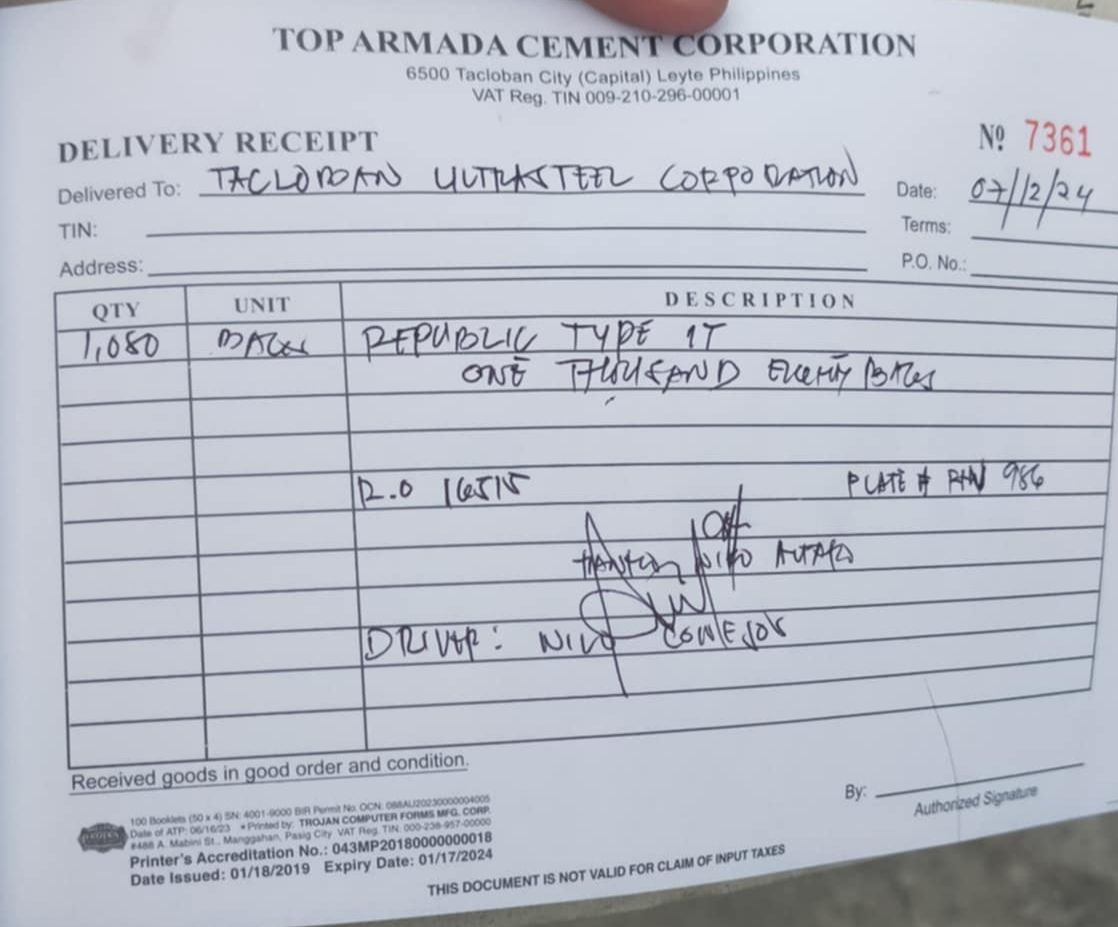 TOP ARMADA CEMENT CORPORATION
6500 Tacloban City (Capital) Leyte Philippines
VAT Reg. TIN 009-210-296-00001
DELIVERY RECEIPT
Nº 7361
Delivered To: TACLOBAN ULTRASTEEL CORPORATION
Date: 07/12/24
TIN:
Terms:
Address:
P.O. No.:
QTY UNIT DESCRIPTION
1,080 BAGS REPUBLIC TYPE 1T
ONE THOUSAND EIGHTY BAGS
R.O 16515 PLATE # 986
NIÑO
DRIVER: NIÑO
Received goods in good order and condition.
By:
Authorized Signature
100 Booklets (50 x 4) SN: 4001-9000 BIR Permit No. OCN: 088AU20230000004005
Date of ATP: 06/16/23 • Printed by: TROJAN COMPUTER FORMS MFG. CORP.
#488 A. Mabini St., Manggahan, Pasig City VAT Reg. TIN. 000-238-957-00000
Printer's Accreditation No.: 043MP20180000000018
Date Issued: 01/18/2019 Expiry Date: 01/17/2024
THIS DOCUMENT IS NOT VALID FOR CLAIM OF INPUT TAXES